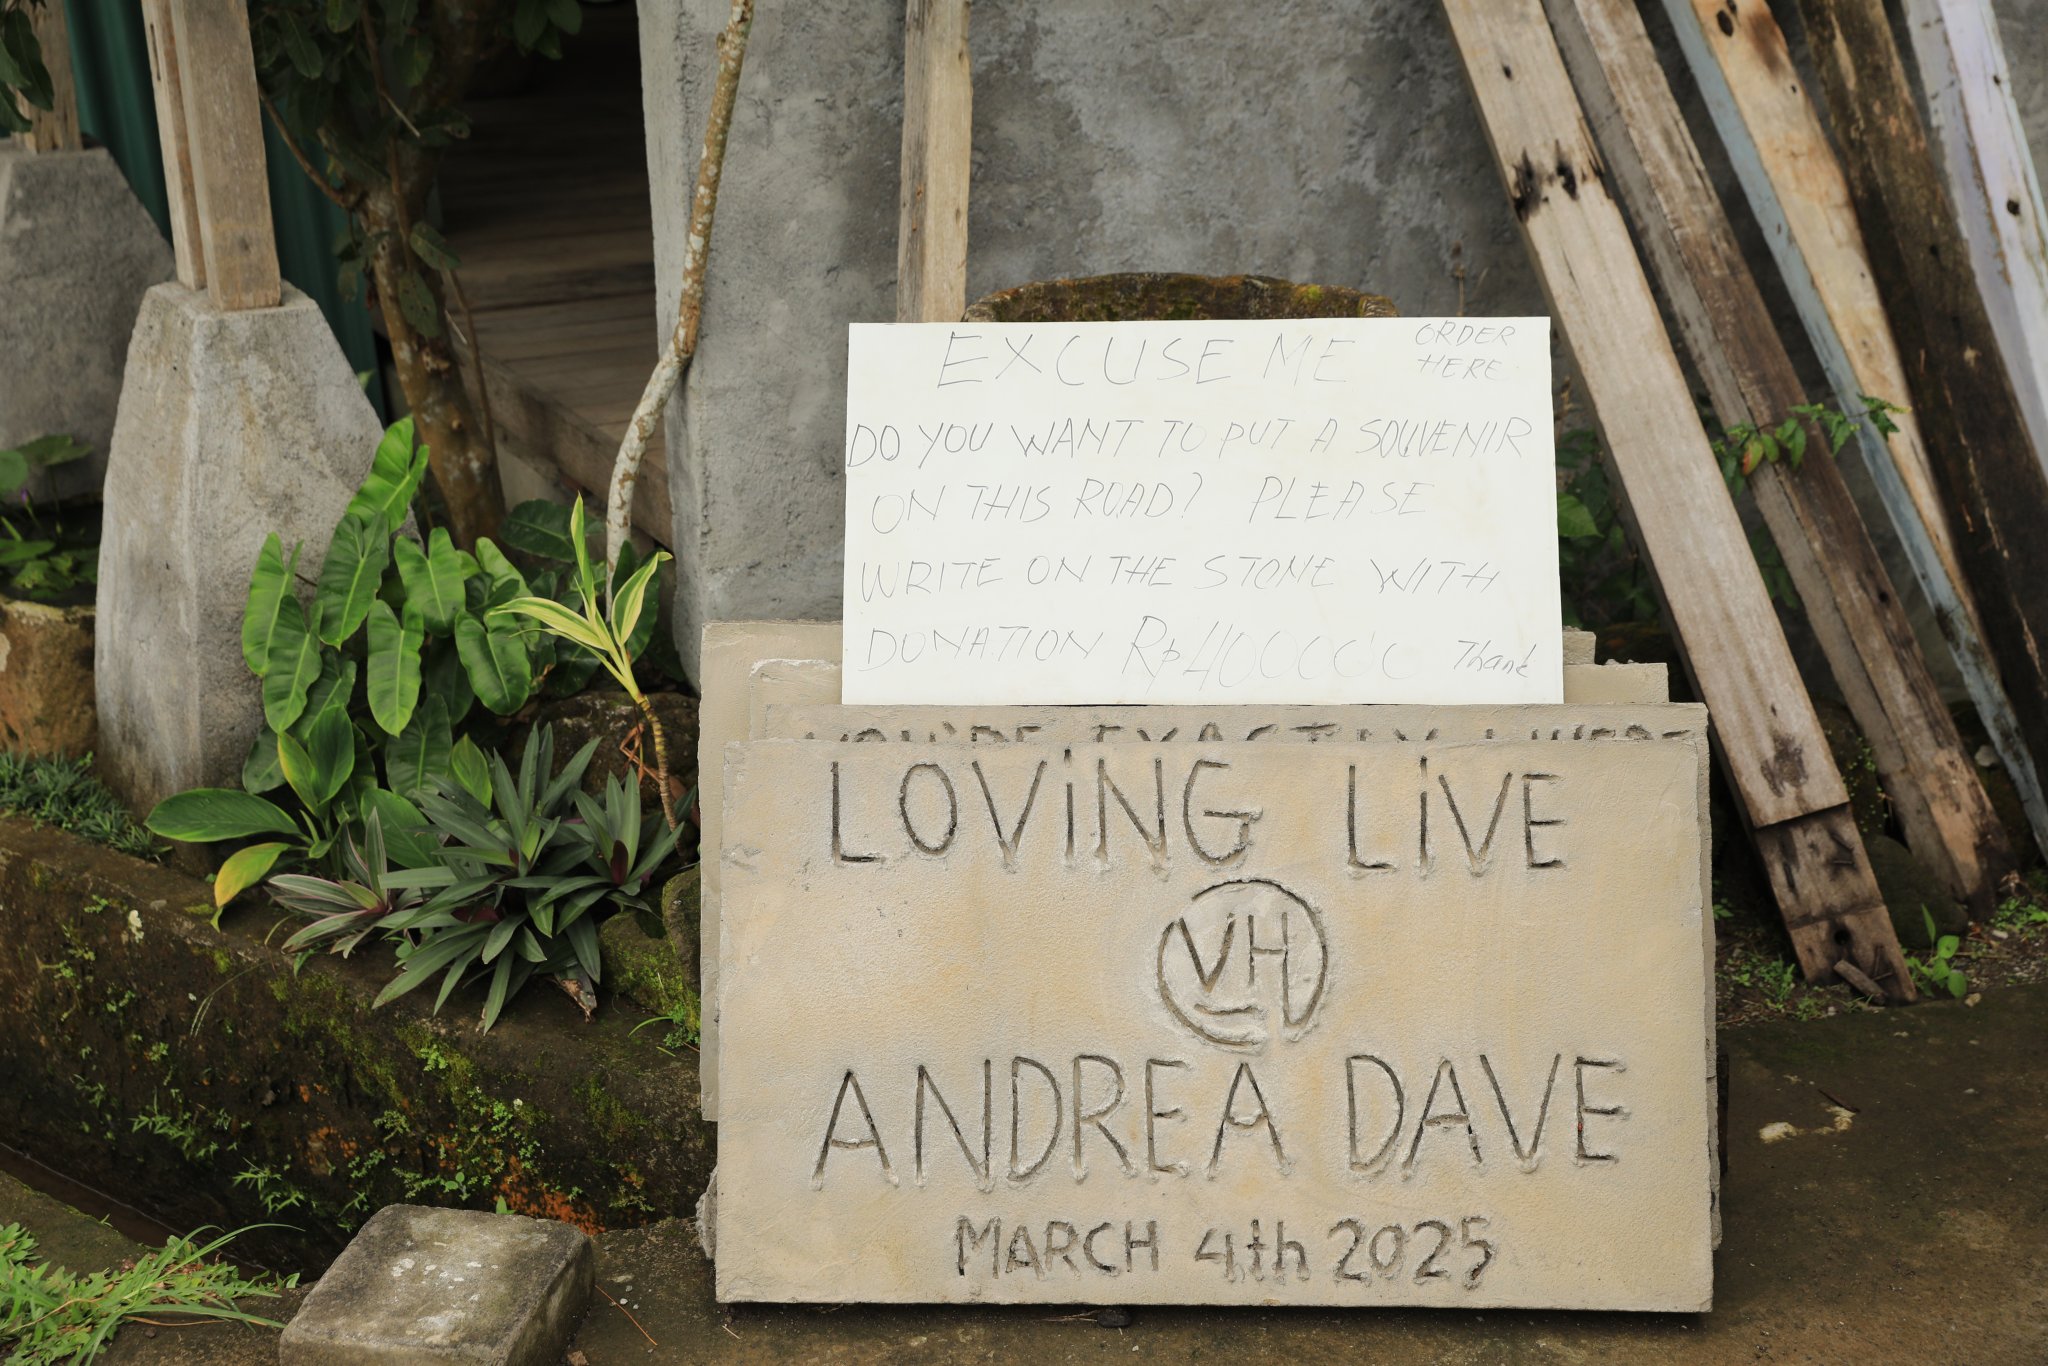 EXCUSE ME
ORDER
HERE
DO YOU WANT TO PUT A SOUVENIR
ON THIS ROAD? PLEASE
WRITE ON THE STONE WITH
DONATION Rp 400000 Thank
YOU'RE EXACTLY WHERE
LOViNG LiVE
VH
ANDREA DAVE
MARCH 4th 2025